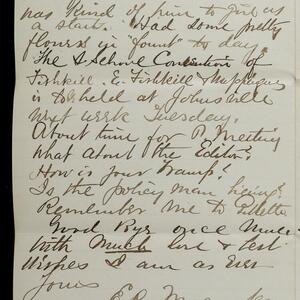 was kind of him to give us
a start. Had some pretty
flowers in "fount" to day.
The S School Convention of
Fishkill. E. Fishkill & Wappinger
is to be held at Johnsville
next week Tuesday.
About time for P. Meeting
What about the Editor?
How is your
Is the policy man being?
Remember me to
Good Bye once more
With Much love & best
Wishes I am as Ever
Yours
E.